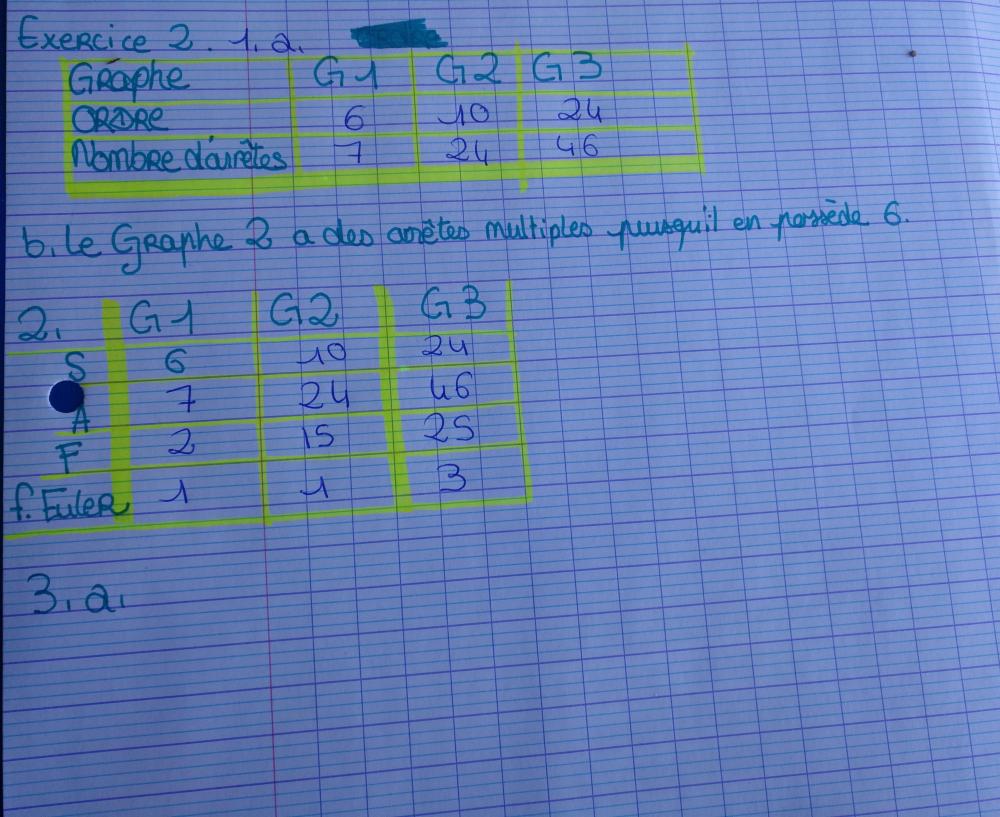 Exercice 2. 1. a.
Graphe G1 G2 G3
ORDRE 6 10 24
Nombre d'arêtes 7 24 46
b. Le Graphe 2 a des arêtes multiples puisqu'il en possède 6.
2. G1 G2 G3
S 6 10 24
A 7 24 46
F 2 15 25
f. Euler 1 1 3
3. a.